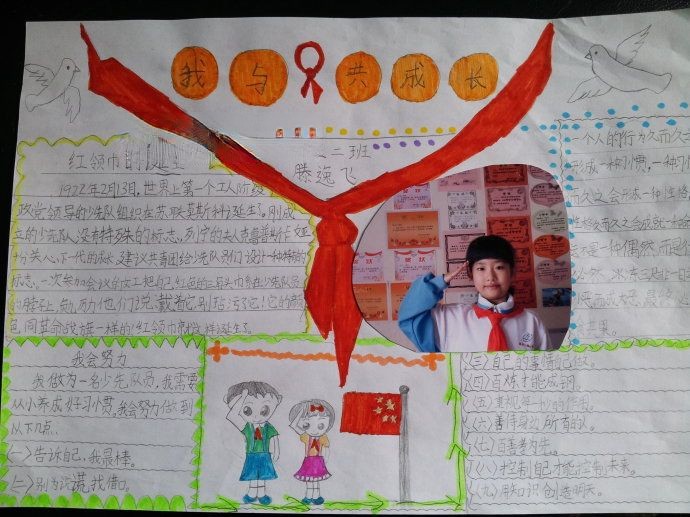 我与共成长
二二班
滕逸飞
红领巾
1922年2月13日,世界上第一个工人阶级
政党领导的少先队组织在苏联莫斯科诞生了。刚成
立的少先队没有特殊的标志,列宁的夫人克鲁普斯卡亚
十分关心下一代的成长,建议共青团给少先队员们设计一种特殊的
标志,一次参加会议的女工把自己红色的三角头巾系在少先队员
的脖子上,勉励他们说:戴着它,别玷污了它!它的颜
色同革命战旗一样的!红领巾就这样诞生了。
一个人的行为久而久之
形成一种习惯,一种习惯
久而久之会形成一种性格
性格久而久之会成就
是一种偶然而是
冰冻三尺非一日
我会努力
我做为一名少先队员,我需要
从小养成好习惯,我会努力做到
以下几点.
(一)告诉自己,我最棒。
(二)别为说谎找借口。
(三)自己的事情自己做。
(四)百炼才能成钢。
(五)重视年少的价值。
(六)善待身边所有的人。
(七)百善孝为先。
(八)控制自己才能控制未来。
(九)用知识创造明天。